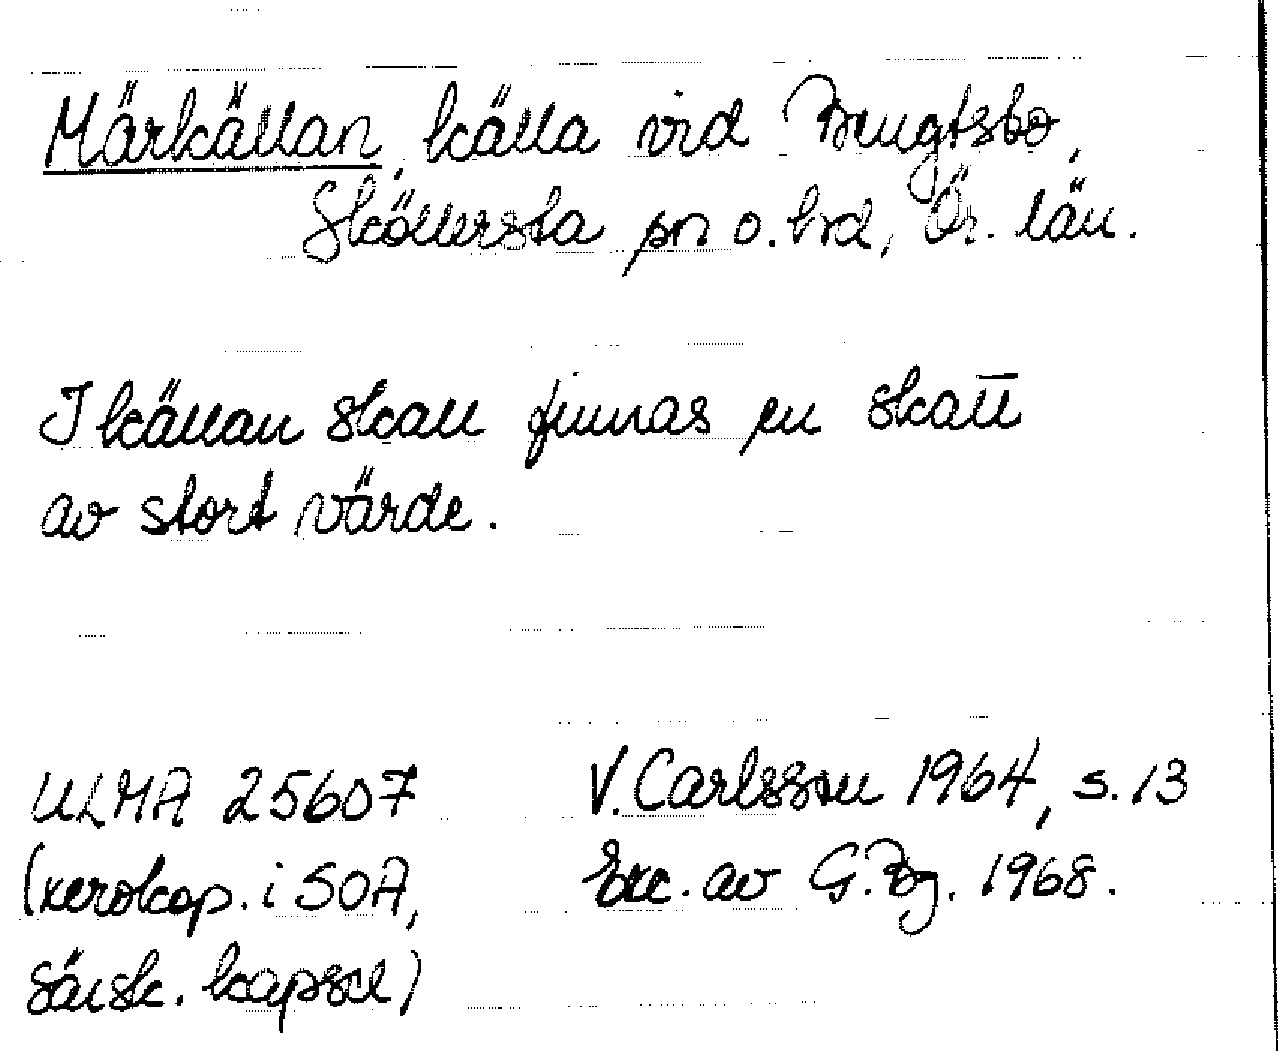 Märkällan, källa vid Brugtsbo,
Sköllersta sn o. hrd, Ör. län.
I källan skall finnas en skatt
av stort värde.
ULMA 25607
(xerokop. i SOA,
särsk. kapsel)
V. Carlsson 1964, s. 13
Exc. av G. Bg. 1968.